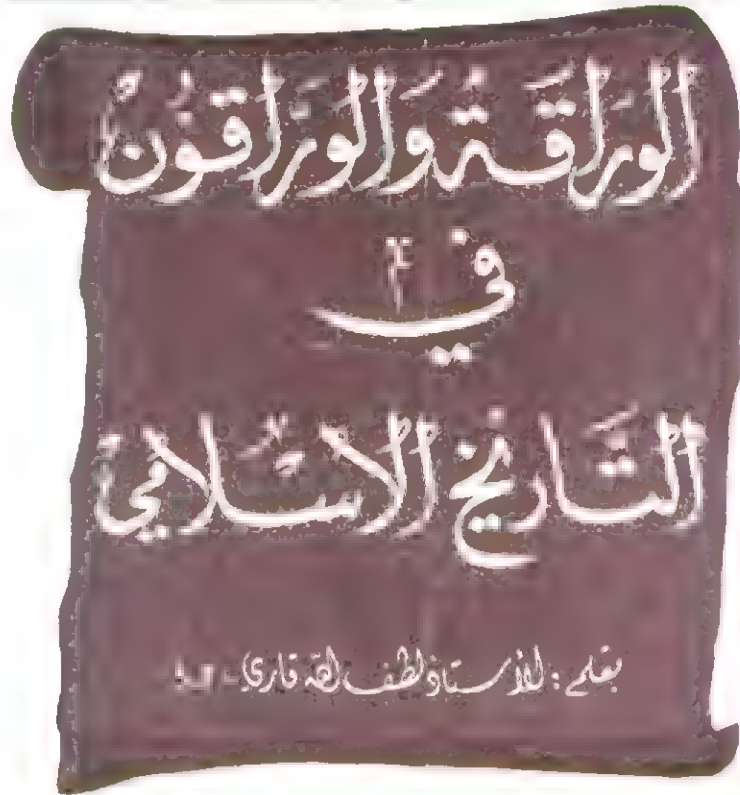 الوراقة والوراقون
في
التاريخ الإسلامي
بقلم : الأستاذ لطف الله قاري